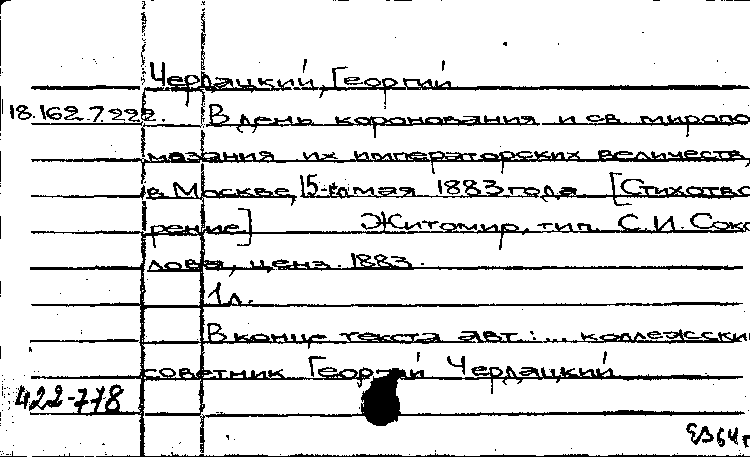 Чердацкий, Георгий
18.162.7.222. В день коронования и св. миропо
мазания их императорских величеств,
в Москве, 15-го мая 1883 года [Стихотво
рение] Житомир, тип. С.И. Соко
лова, ценз. 1883.
1 л.
В конце текста авт.: ... коллежский
советник Георгий Чердацкий
422-778